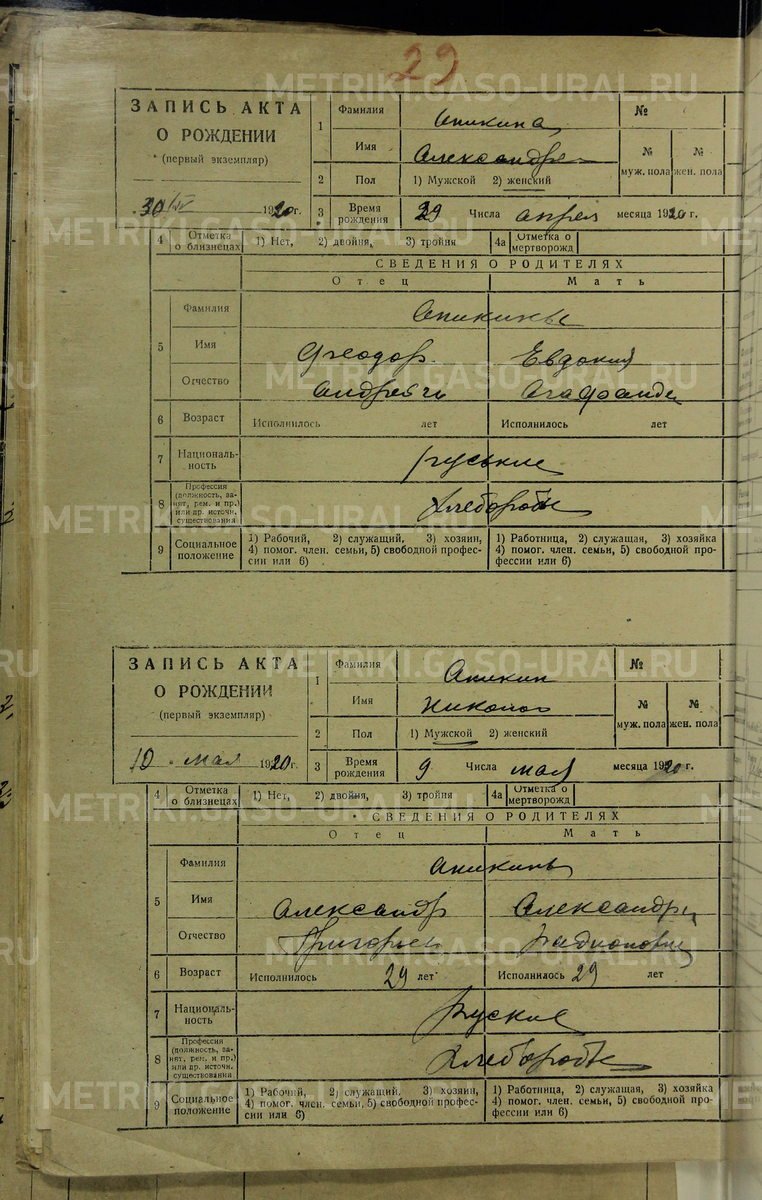 29
METRIKI.GASO-URAL.RU
ЗАПИСЬ АКТА
О РОЖДЕНИИ
(первый экземпляр)
30/IV 1920г.
1 Фамилия Аникина №
Имя Александра № муж. пола № жен. пола
2 Пол 1) Мужской 2) женский
3 Время рождения 29 Числа апреля месяца 1920 г.
4 Отметка о близнецах 1) Нет, 2) двойня, 3) тройня 4а Отметка о мертворожд
СВЕДЕНИЯ О РОДИТЕЛЯХ
Отец Мать
5 Фамилия Аникины
Имя Феодор Евдокия
Отчество
6 Возраст Исполнилось лет Исполнилось лет
7 Националь-
ность руськие
8 Профессия
(должность, за-
нят, рем. и пр.)
или др. источн.
существования
Хлеборобы
9 Социальное
положение
1) Рабочий, 2) служащий, 3) хозяин,
4) помог. член. семьи, 5) свободной профес-
сии или 6)
1) Работница, 2) служащая, 3) хозяйка
4) помог. член. семьи, 5) свободной про-
фессии или 6)
ЗАПИСЬ АКТА
О РОЖДЕНИИ
(первый экземпляр)
10 мая 1920г.
1 Фамилия Аникин №
Имя Николай № муж. пола № жен. пола
2 Пол 1) Мужской 2) женский
3 Время рождения 9 Числа мая месяца 1920 г.
4 Отметка о близнецах 1) Нет, 2) двойня, 3) тройня 4а Отметка о мертворожд
СВЕДЕНИЯ О РОДИТЕЛЯХ
Отец Мать
5 Фамилия Аникины
Имя Александр Александра
Отчество Григорьев Радионовна
6 Возраст Исполнилось 29 лет Исполнилось 29 лет
7 Националь-
ность Руские
8 Профессия
(должность, за-
нят, рем. и пр.)
или др. источн.
существования
Хлеборобы
9 Социальное
положение
1) Рабочий, 2) служащий, 3) хозяин,
4) помог. член. семьи, 5) свободной профес-
сии или 6)
1) Работница, 2) служащая, 3) хозяйка
4) помог. член. семьи, 5) свободной про-
фессии или 6)